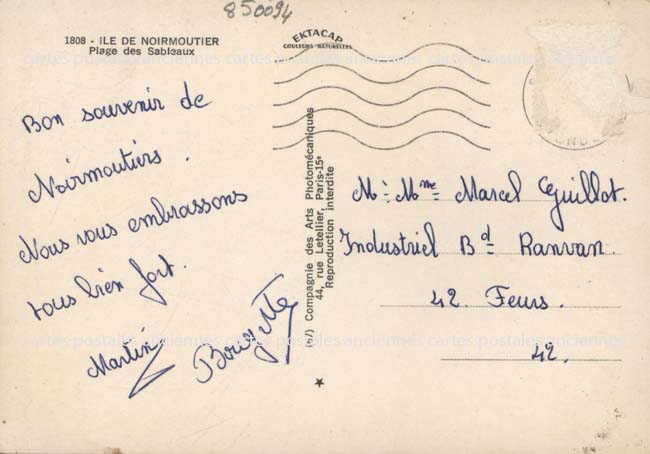 850094
1808 - ILE DE NOIRMOUTIER
Plage des Sableaux
EKTACAP
COULEURS NATURELLES
cartes postales anciennes cartes postales anciennes cartes postales anciennes
Bon souvenir de
Noirmoutiers.
Nous vous embrassons
tous bien fort.
Martine
(57) Compagnie des Arts Photomécaniques
44, rue Letellier, Paris-15e
Reproduction interdite
M: Mme Marcel Guillot.
Industriel Bd Ranvan.
42. Feurs.
42.
cartes postales anciennes cartes postales anciennes cartes postales anciennes